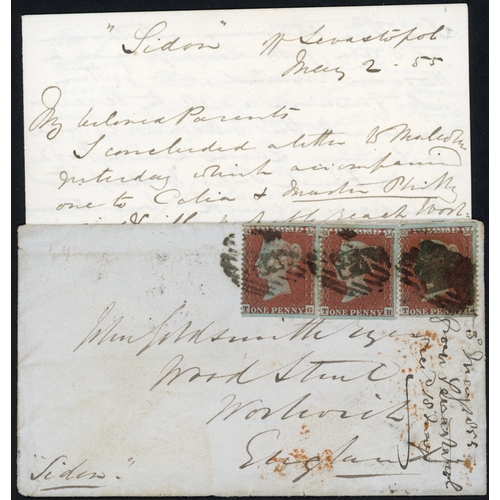 "Sidon" off Sevastopol
May 2 - 55
My beloved Parents
I concluded a letter to Malcolm
yesterday which accompanies
one to Celia & Master Philly
reach Wool-
T ONE PENNY G
T ONE PENNY H
T ONE PENNY
John Goldsmith Esqre
Wood Street
Woolwich
England
"Sidon"
1855
from Sevastopol